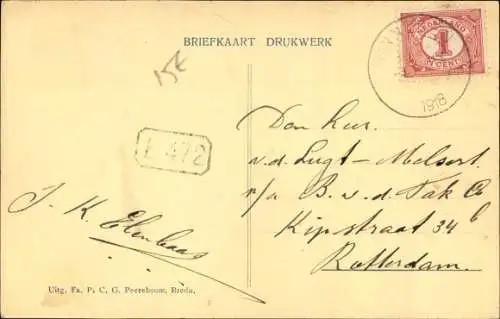 BRIEFKAART DRUKWERK
15E
NEDERLAND
1
CENT
1918
L 472
Den heer
v.d. Lugt - Melsert.
p/a B. v. d. Tak Co
Kipstraat 34 b
Rotterdam.
J. K. Elenbaas
Uitg. Fa. P. C. G. Peereboom, Breda.